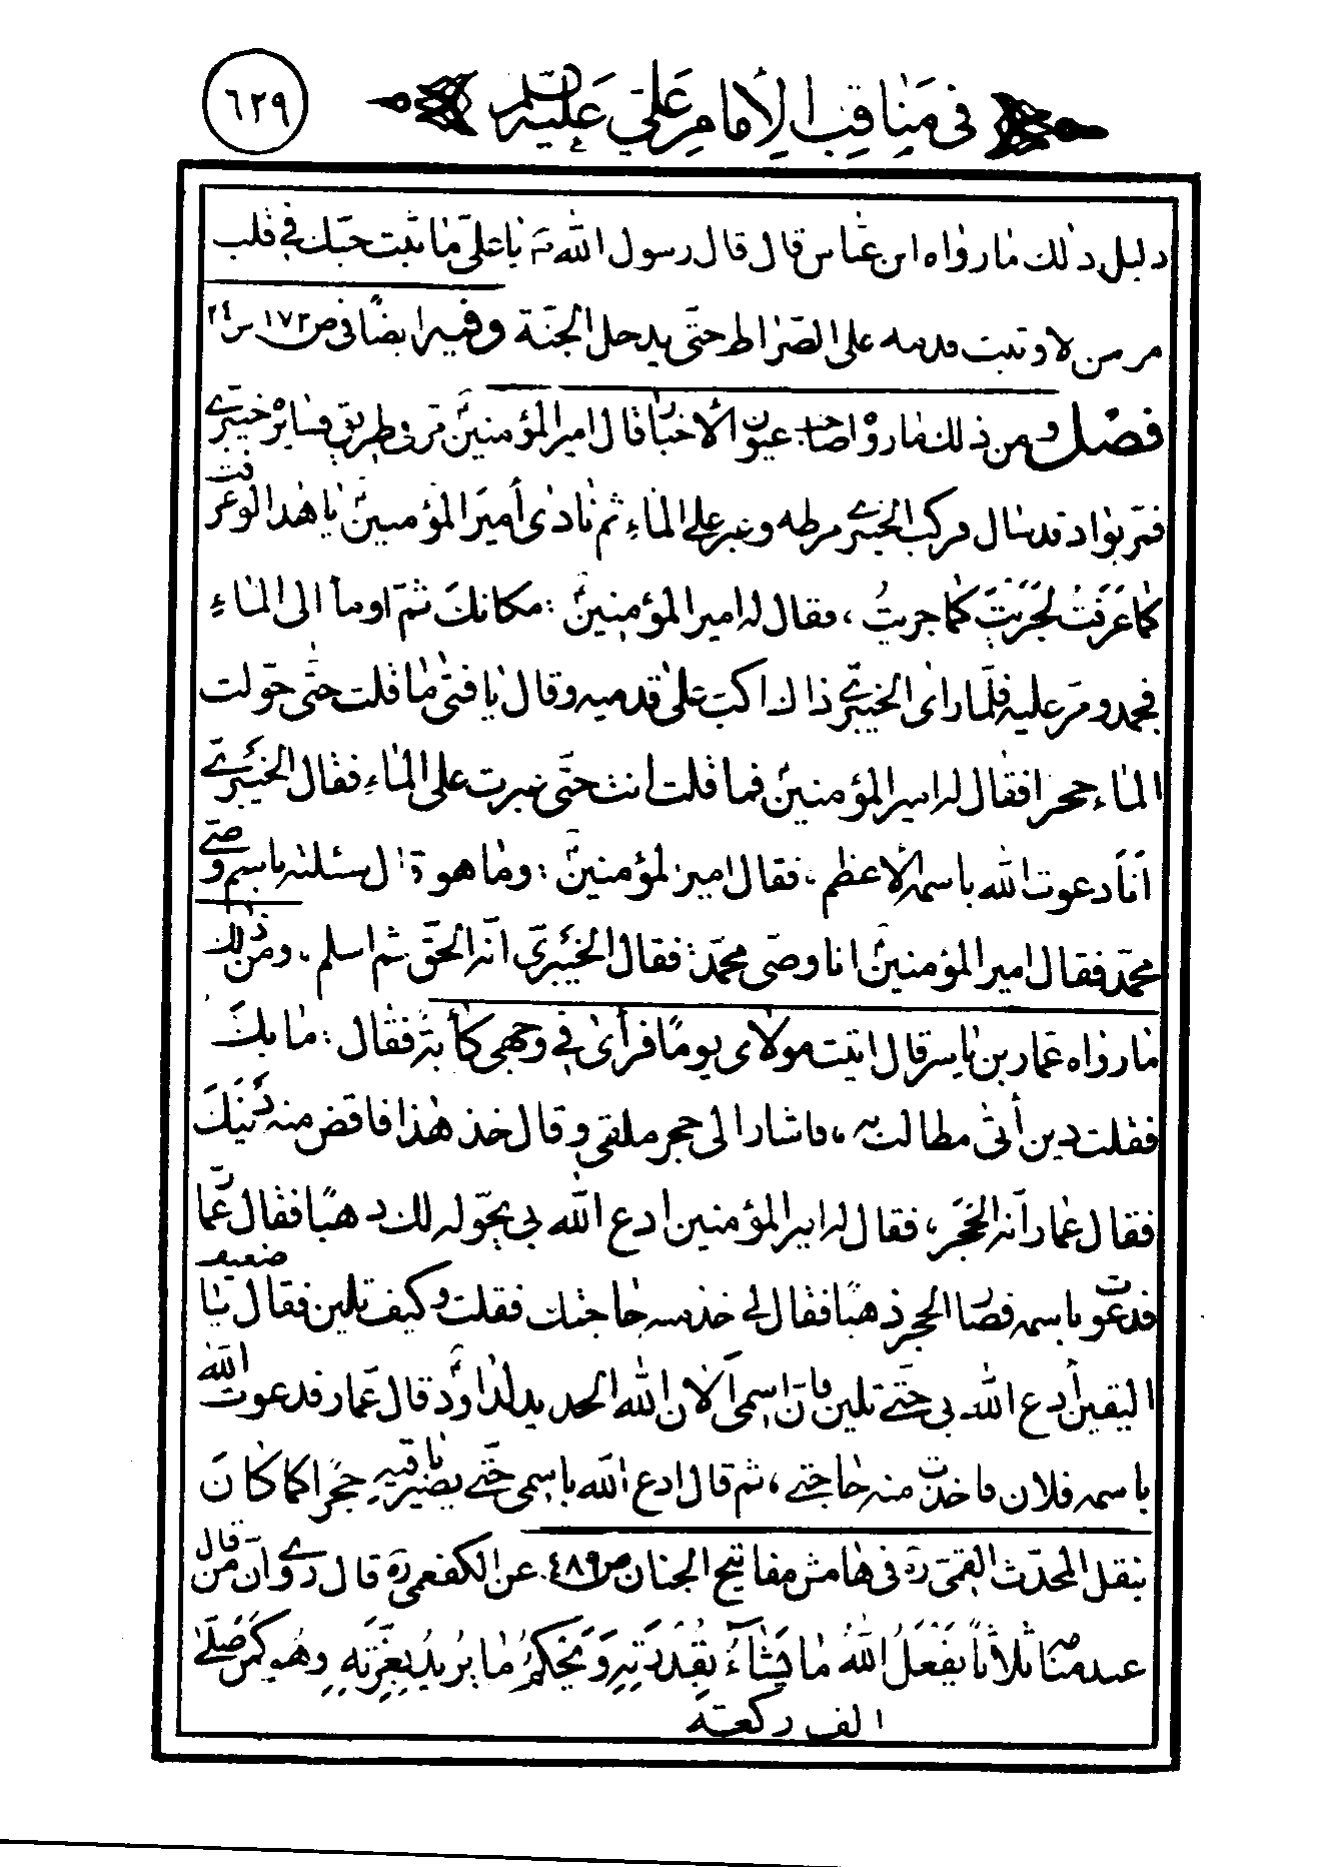 ٦٢٩
في مناقب الإمام علي عليه السلم
دليل ذلك ما رواه ابن عباس قال قال رسول الله ص يا علي ما ثبت حبك في قلب
مرمن لا وتبت قدمه على الصراط حتى يدخل الجنة وفيه ايضاً في ص ١٧٣ س ٢٤
فصل ومن ذلك ما رواه صاحب عيون الأخبار قال امير المؤمنين مر في طريق فسايره خيبري
فمر بواد قد سال فركب الخيبري مرطه وعبر على الماء ثم نادى أمير المؤمنين يا هذا لو عرفت
كما عرفت لجريت كما جريت ، فقال له امير المؤمنين : مكانك ثم اومأ الى الماء
فجمد ومر عليه فلما رأى الخيبري ذاك اكب على قدميه وقال يا فتى ما قلت حتى حولت
الماء حجرا فقال له امير المؤمنين فما قلت انت حتى عبرت على الماء فقال الخيبري
أنا دعوت الله باسمه الأعظم ، فقال امير المؤمنين : وما هو قال سئلته باسم وصي
محمد فقال امير المؤمنين انا وصي محمد : فقال الخيبري انه الحق ثم اسلم . ومن ذلك
ما رواه عمار بن ياسر قال اتيت مولاى يوماً فرأى في وجهي كأبة فقال : ما بك
فقلت دين أتى مطالب به ، فاشار الى حجر ملقى وقال خذ هذا فاقض منه دينك
فقال عمار انه الحجر ، فقال له امير المؤمنين ادع الله بي يحوله لك ذهباً فقال عمار
فدعوت باسمه فصار الحجر ذهباً فقال لي خذ منه حاجتك فقلت وكيف تلين فقال يا ضعيف
اليقين أدع الله بي حتى تلين فان اسمي ألان الله الحديد لداود قال عمار فدعوت الله
باسمه فلان فاخذت منه حاجتي ، ثم قال ادع الله باسمي حتى يصير باقيه حجرا كما كان
بنقل المحدث القمي ره في هامش مفاتيح الجنان ص ٤٨٩ . عن الكفعمي ره قال روي أن من قال
عند منامه ثلاثاً يفعل الله ما يشاء بقدرته ويحكم ما يريد بعزته وهو كمن صلى
الف ركعته